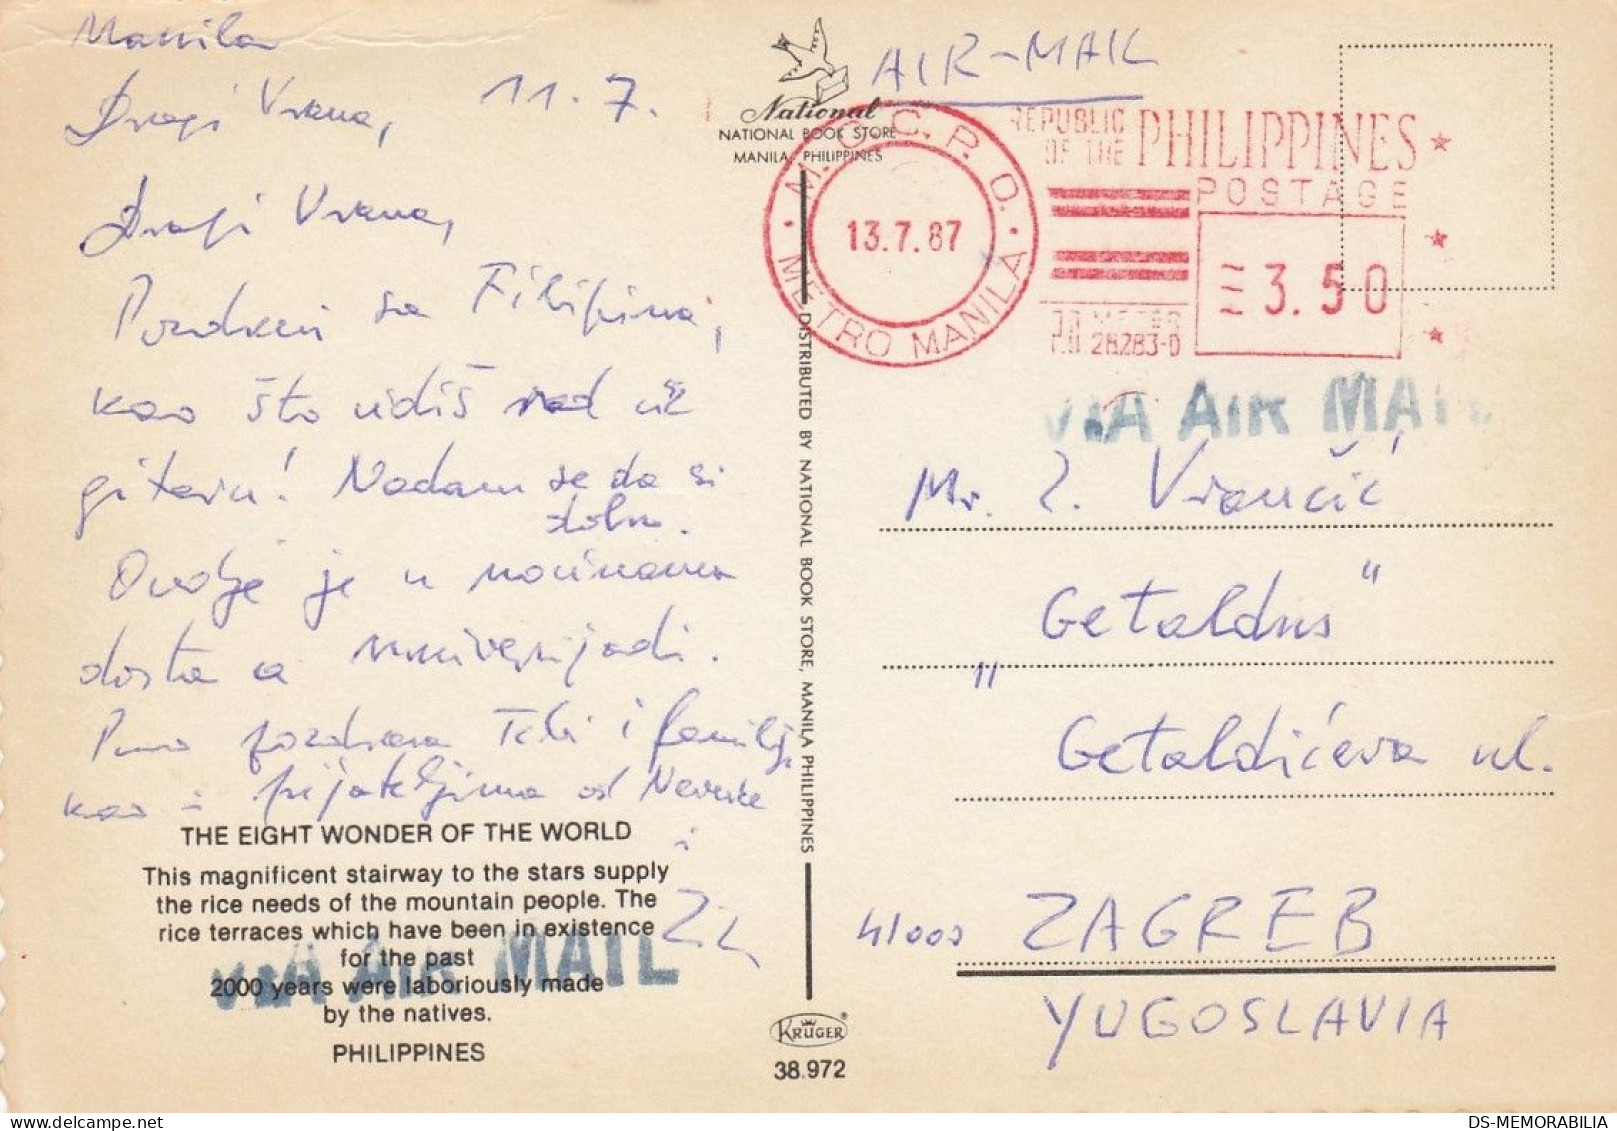 Manila
11. 7.
Dragi Vrana,
Dragi Vrana,
Pozdravi sa Filipina,
kao što vidiš rad uz
gitaru! Nadam se da si
dobro.
Ovdje je u novinama
dosta o univerzijadi.
Puno pozdrava Tebi i familiji
kao i prijateljima od Nevenke
i
THE EIGHT WONDER OF THE WORLD
This magnificent stairway to the stars supply
the rice needs of the mountain people. The
rice terraces which have been in existence
for the past
2000 years were laboriously made
by the natives.
PHILIPPINES
VIA AIR MAIL
National
NATIONAL BOOK STORE
MANILA, PHILIPPINES
DISTRIBUTED BY NATIONAL BOOK STORE, MANILA PHILIPPINES
KRÜGER®
38.972
AIR-MAIL
M. G. C. P. O.
METRO MANILA
13.7.87
REPUBLIC
OF THE
PHILIPPINES
POSTAGE
3.50
28283-D
VIA AIR MAIL
Mr. Z. Vrančić
Getaldus"
"
Getaldićeva ul.
41000 ZAGREB
YUGOSLAVIA
DS-MEMORABILIA